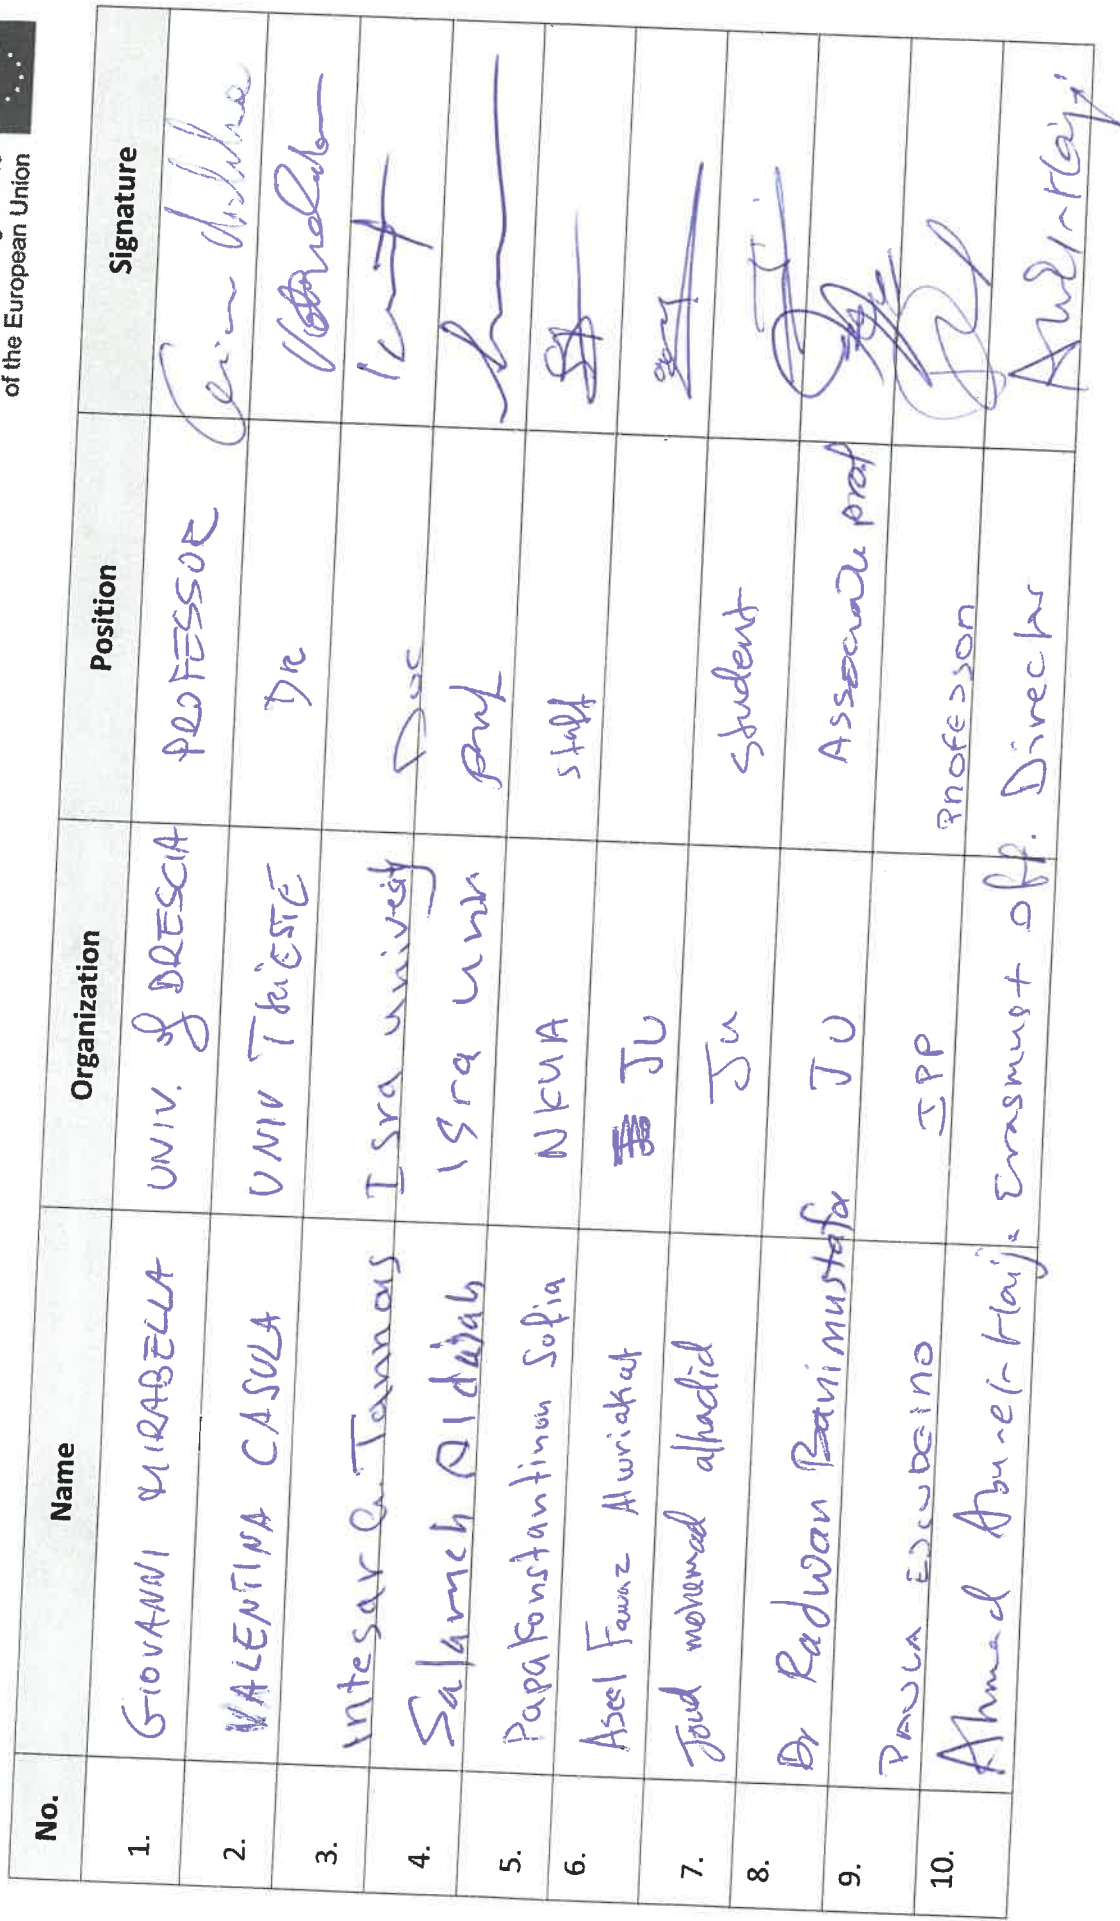 of the European Union
No. Name Organization Position Signature
1. GIOVANNI MIRABELLA UNIV. of BRESCIA PROFESSOR
2. VALENTINA CASULA UNIV TRIESTE DR
3. Intesar G. Tannous Isra univesty
4. Salameh Aldajah Isra uni prof
5. Papakonstantinou Sofia NKUA staff
6. Aseel Fawaz Alwriakat JU
7. Joud mohemad alhadid Ju student
8. Dr Radwan Banimustafa JU Associate prof
9. PAULA ESCUDEIRO IPP PROFESSOR
10. Ahmad Abu-el-Haija Erasmus+ Off. Director